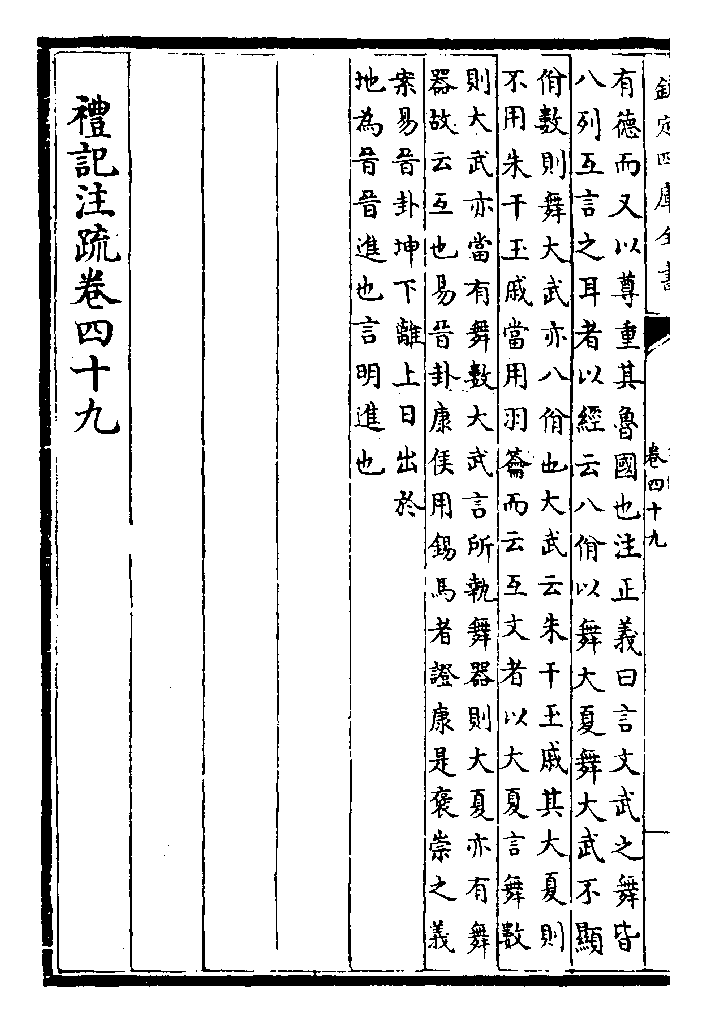 欽定四庫全書
卷四十九
有德而又以尊重其魯國也注正義曰言文武之舞皆
八列互言之耳者以經云八佾以舞大夏舞大武不顯
佾數則舞大武亦八佾也大武云朱干玉戚其大夏則
不用朱干玉戚當用羽籥而云互文者以大夏言舞數
則大武亦當有舞數大武言所執舞器則大夏亦有舞
器故云互也易晉卦康侯用錫馬者證康是褒崇之義
案易晉卦坤下離上日出於
地為晉晉進也言明進也
禮記注疏卷四十九